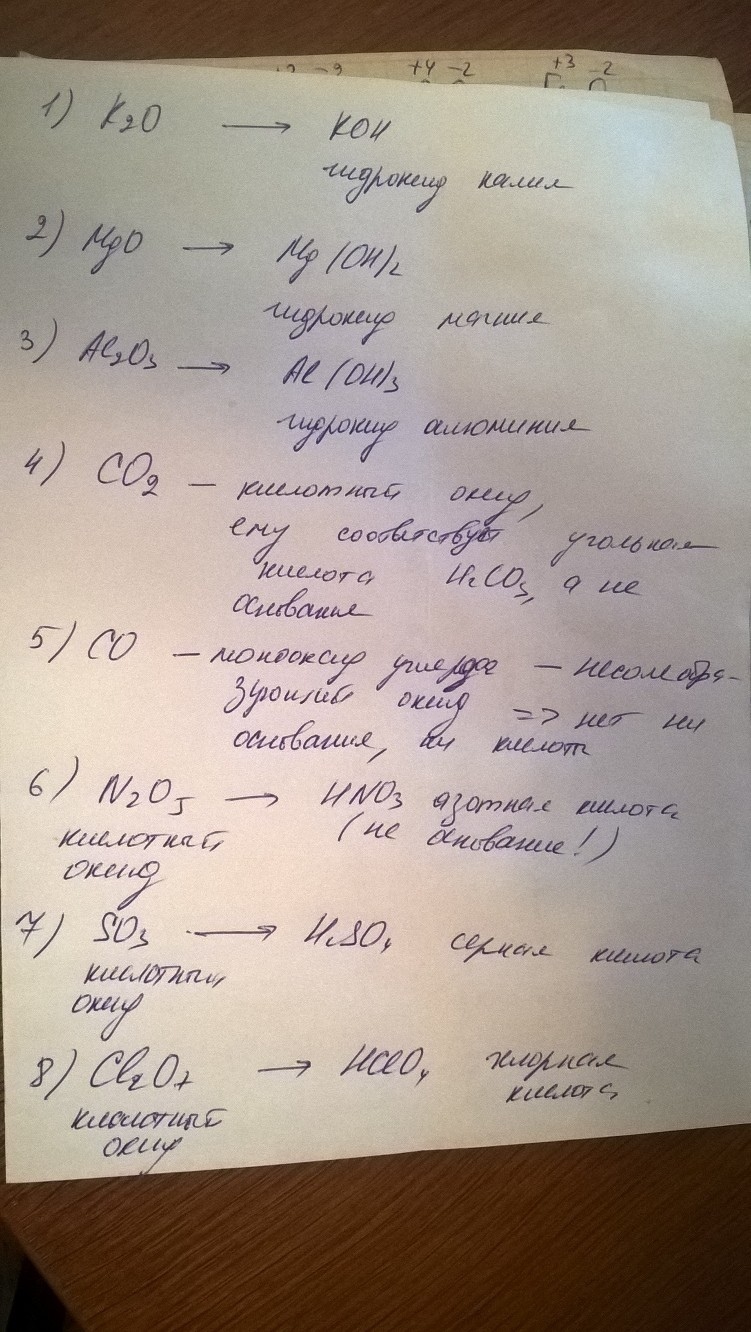 +4 -2 +3 -2
1) K2O → KOH
гидроксид калия
2) MgO → Mg(OH)2
гидроксид магния
3) Al2O3 → Al(OH)3
гидроксид алюминия
4) CO2 — кислотный оксид,
ему соответствует угольная
кислота H2CO3, а не
основание
5) CO — монооксид углерода — несолеобра-
зующий оксид => нет ни
основания, ни кислоты
6) N2O5 → HNO3 азотная кислота
кислотный (не основание!)
оксид
7) SO3 → H2SO4 серная кислота
кислотный
оксид
8) Cl2O7 → HClO4 хлорная
кислота
кислотный
оксид